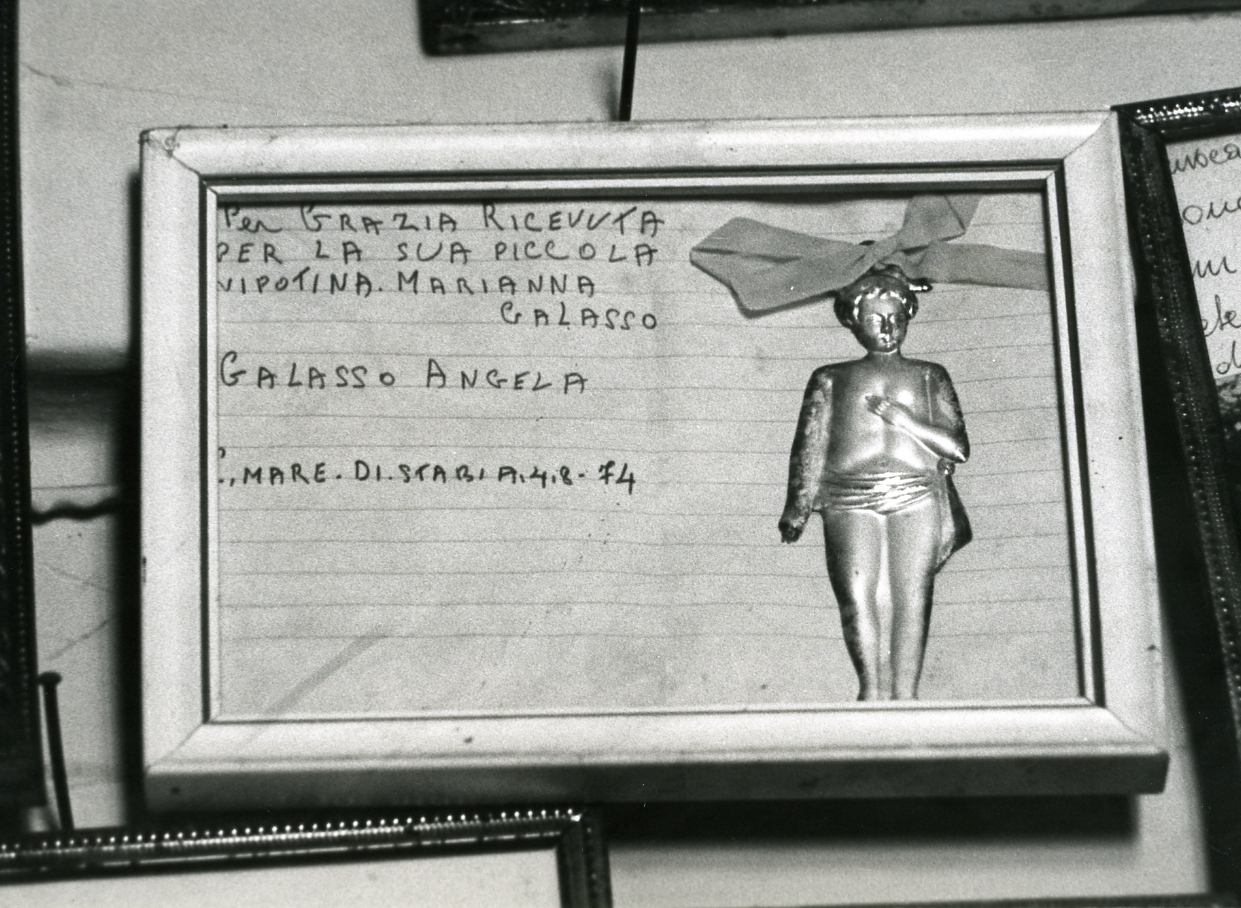 Per GRAZIA RICEVUTA
PER LA SUA PICCOLA
NIPOTINA. MARIANNA
GALASSO
GALASSO ANGELA
C., MARE. DI. STABIA. 4. 8 - 74